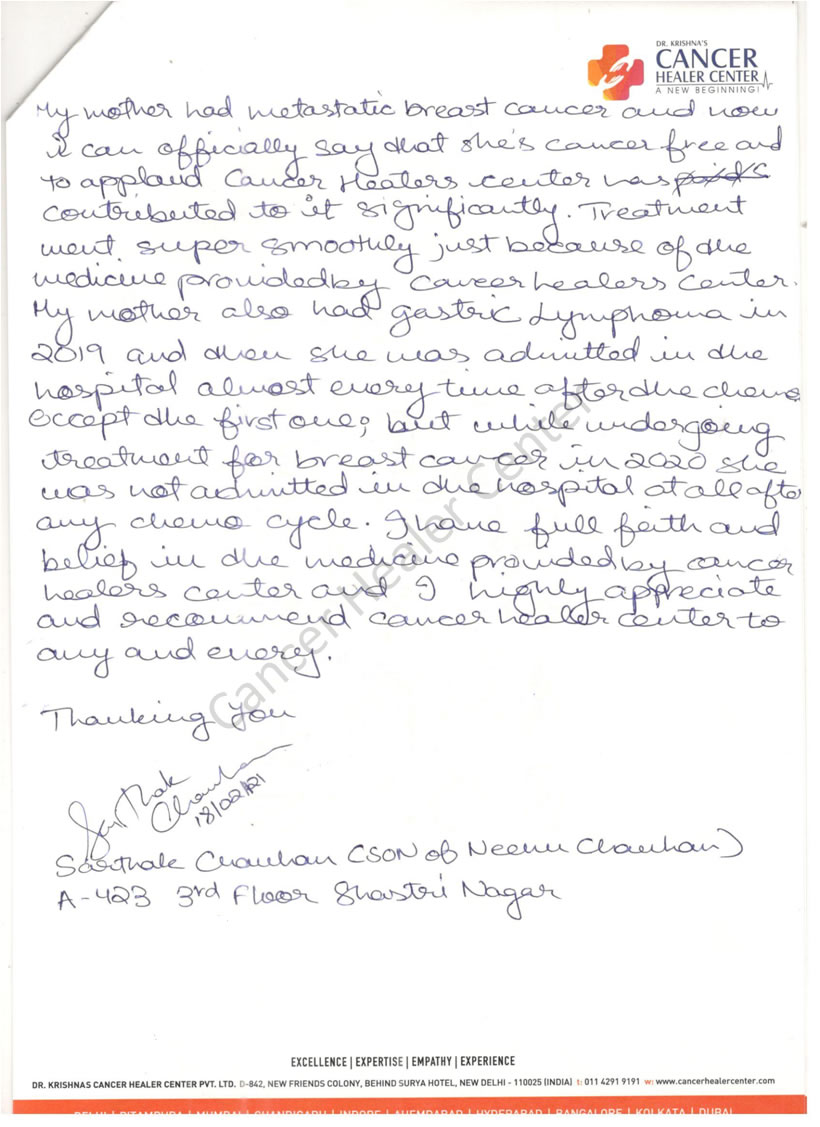 DR. KRISHNA'S
CANCER
HEALER CENTER
A NEW BEGINNING!
My mother had metastatic breast cancer and now
i can officially say that she's cancer free and
to applaud Cancer Healers center has
contributed to it significantly. Treatment
went super smoothly just because of the
medicine provided by Cancer healers center.
My mother also had gastric Lymphoma in
2019 and then she was admitted in the
hospital almost every time after the chemo
except the first one, but while undergoing
treatment for breast cancer in 2020 she
was not admitted in the hospital at all afte
any chemo cycle. I have full feith and
belief in the medicine provided by cancer
healers center and I highly appreciate
and recommend cancer healer center to
any and every.
Cancer Healer Center
Thanking You
Sarthak
Chauhan
18/02/21
Sarthak Chauhan (SON of Neenu Chauhan)
A-423 3rd Floor Shastri Nagar
EXCELLENCE | EXPERTISE | EMPATHY | EXPERIENCE
DR. KRISHNAS CANCER HEALER CENTER PVT. LTD. D-842, NEW FRIENDS COLONY, BEHIND SURYA HOTEL, NEW DELHI - 110025 (INDIA) t: 011 4291 9191 w: www.cancerhealercenter.com
DELHI | PITAMPURA | MUMBAI | CHANDIGARH | INDORE | AHEMDABAD | HYDERABAD | BANGALORE | KOLKATA | DUBAI